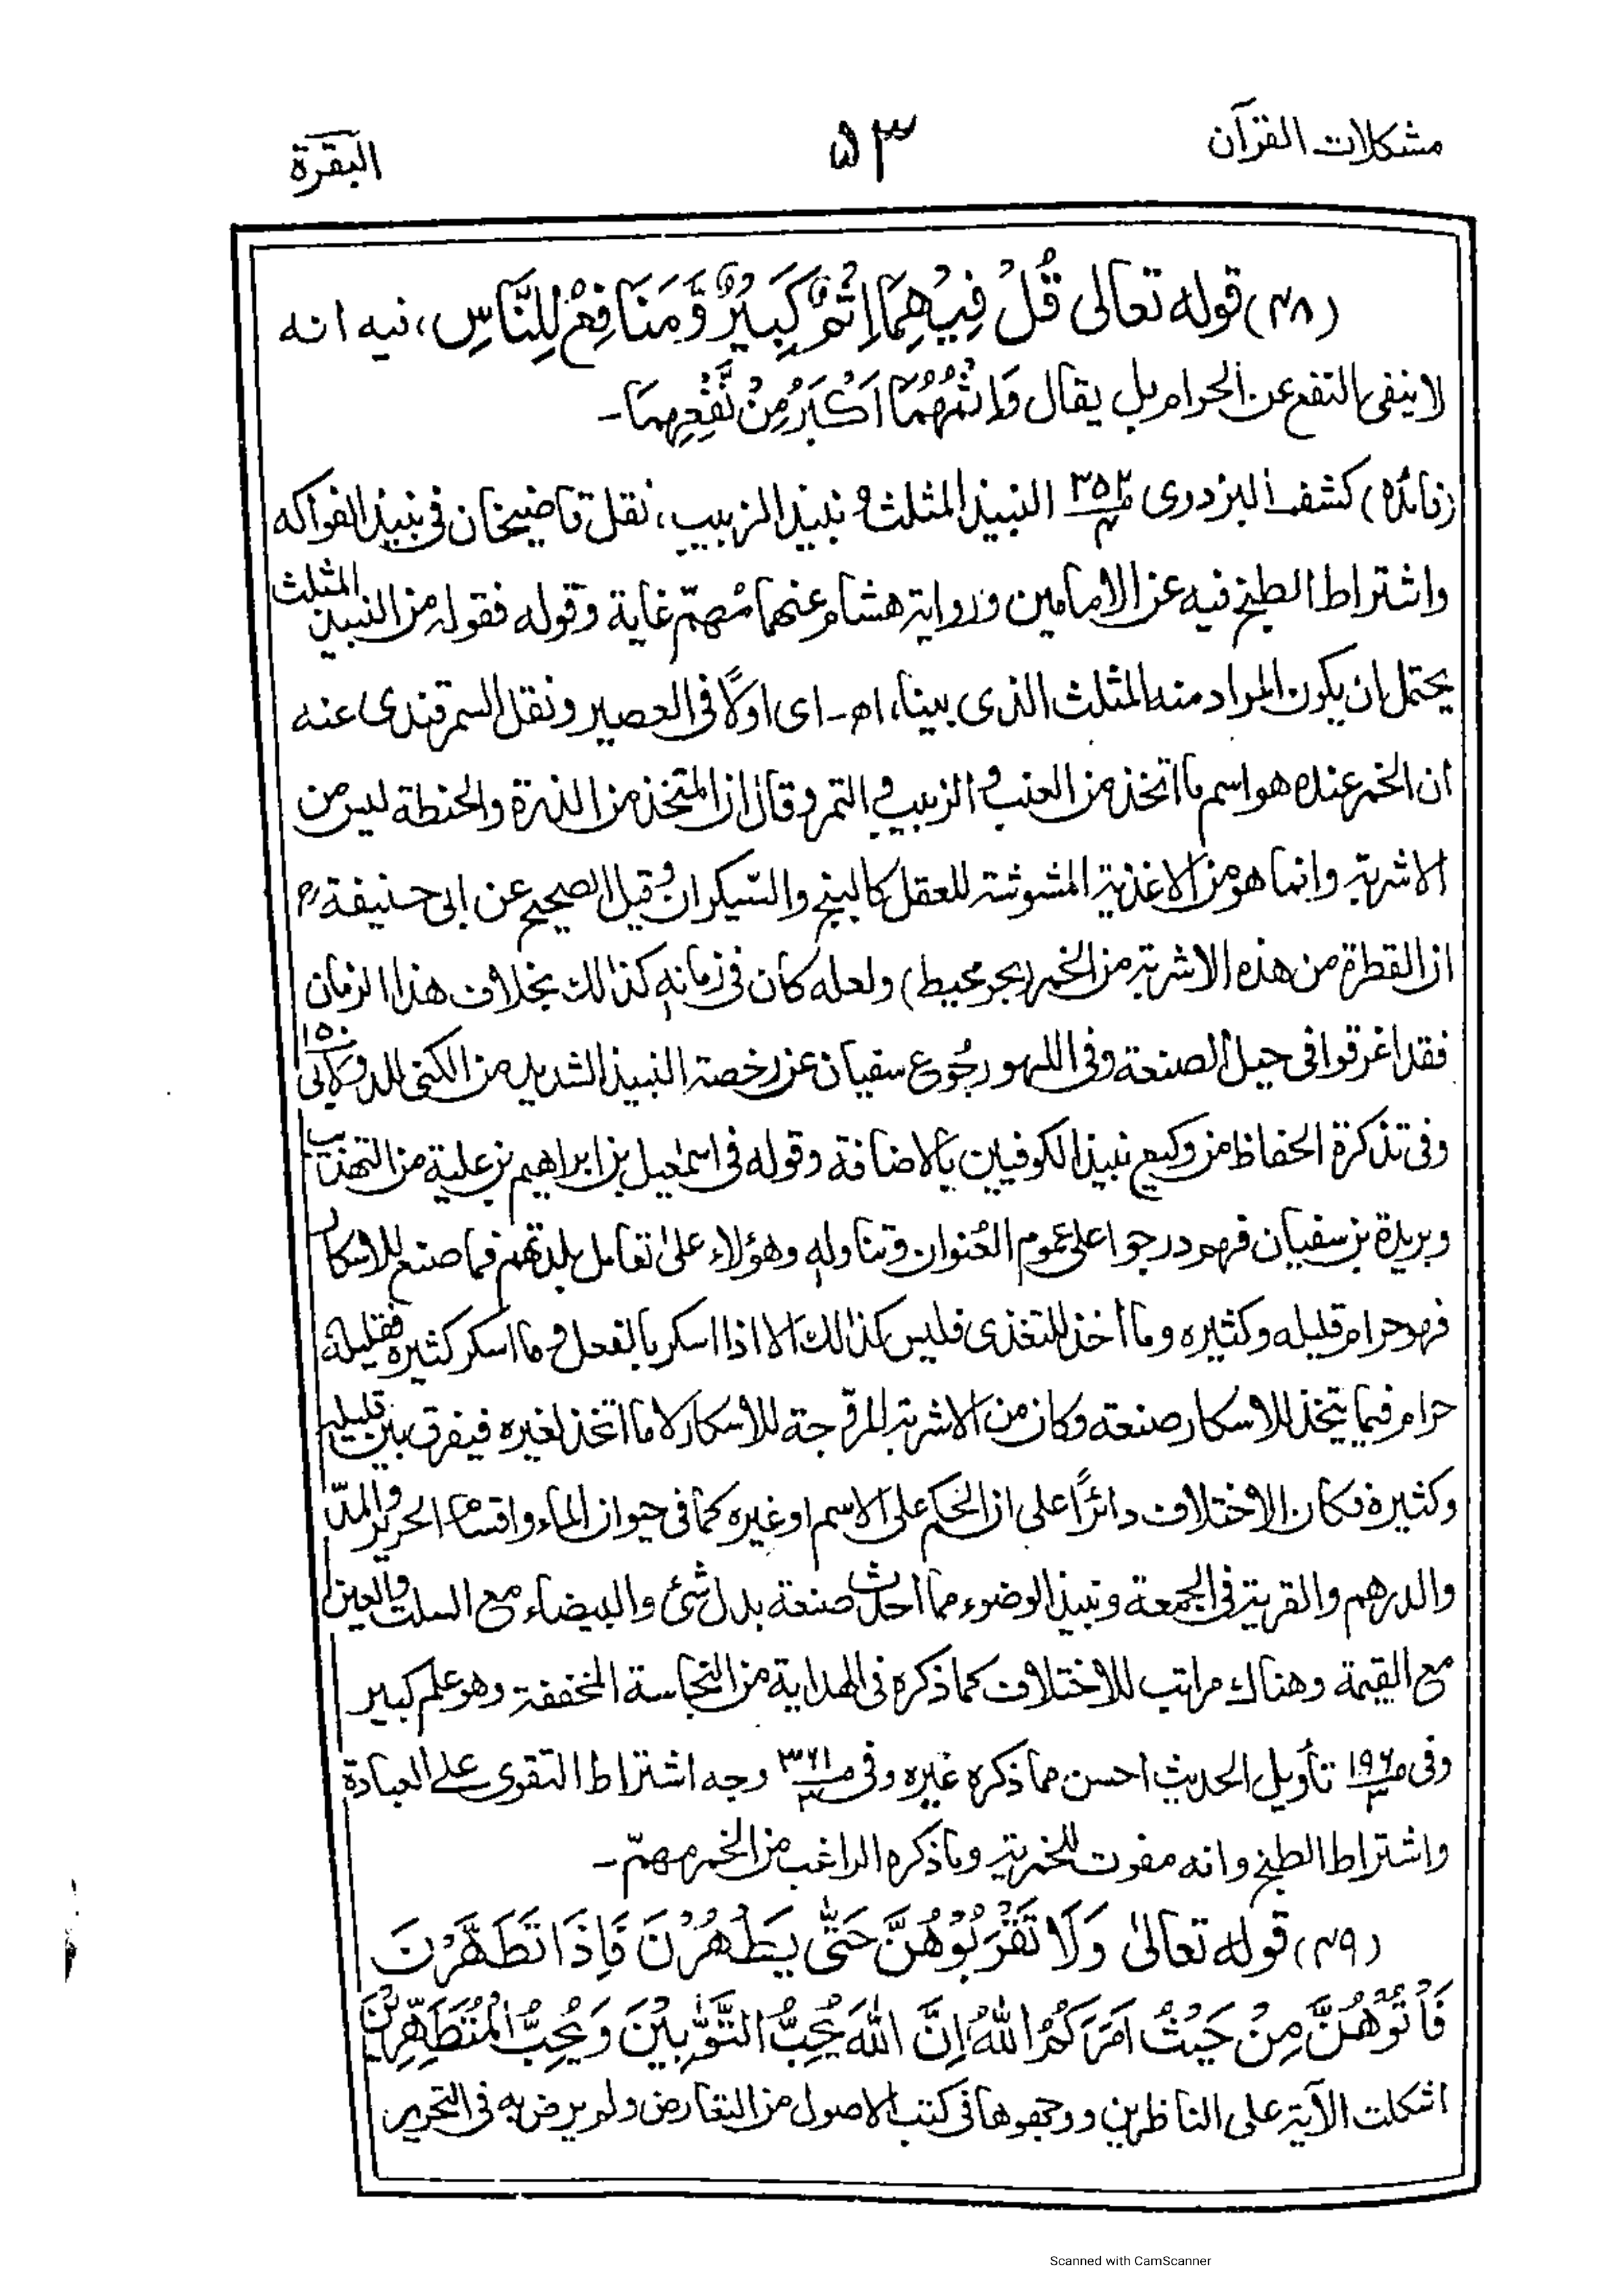 مشكلات القرآن
٥٣
البقرة
(٤٨) قوله تعالى قُلْ فِيْهِمَا اِثْمٌ كَبِيْرٌ وَّمَنَافِعُ لِلنَّاسِ، فيه انه
لا ينفى النفع عن الحرام بل يقال وَاِثْمُهُمَا اَكْبَرُ مِنْ نَّفْعِهِمَا۔
(فائده) كشف البزدوى ص٣٥٢/٤ النبيذ المثلث و نبيذ الزبيب، نقل قاضيخان فى نبيذ الفواكه
واشتراط الطبخ فيه عن الامامين ورواية هشام عنهما مُهمّ غاية وقوله فقوله من النبيذ المثلث
يحتمل ان يكون المراد منه المثلث الذى بينا، اھ۔ اى اولًا فى العصير ونقل السمرقندى عنه
ان الخمر عنده هو اسم ما اتخذ من العنب و الزبيب و التمر وقال ان المتخذ من الذرة والحنطة ليس من
الاشربة وانما هو من الاغذية المشوشة للعقل كالبنج والسّيكران و قيل الصحيح عن ابى حنيفةؒ
ان القطرة من هذه الاشربة من الخمر (بحر محيط) ولعله كان فى زمانه كذالك بخلاف هذا الزمان
فقد اغرقوا فى حيل الصنعة وفى اللهو رجُوع سفيان عن رخصة النبيذ الشديد من الكنى للدولابى ١٥٠
وفى تذكرة الحفاظ من وكيع نبيذ الكوفيين بالاضافة وقوله فى اسمٰعيل بن ابراهيم بن علية من التهذيب
وبريدة بن سفيان فهم درجوا على عموم العُنوان وتناوله وهؤلاء علىٰ تعامل بلدتهم فما صنع للاسكار
فهو حرام قليله وكثيره وما أخذ للتغذى فليس كذالك الا اذا اسكر بالفعل و ما اسكر كثيره فقليله
حرام فيما يتخذ للاسكار صنعته وكان من الاشربة المروّجة للاسكار لا ما اتخذ لغيره فيفرق بين قليله
وكثيره فكان الاختلاف دائرًا على ان الحكم على الاسم او غيره كما فى حيوان الماء واقسام الحرير والمدّ
والدرهم والقرية فى الجمعة ونبيذ الوضوء مما احدث صنعة بدل شئ والبيضاء مع السلت والعين
مع القيمة وهناك مراتب للاختلاف كما ذكره فى الهداية من النجاسة المخففة وهو علم كبير
وفى ص١٩٦/٢ تأويل الحديث احسن مما ذكره غيره وفى ص٣٦١/٢ وجه اشتراط التقوى على العبادة
واشتراط الطبخ وانه مفوت للخمرية وما ذكره الراغب من الخمر مهمّ۔
(٤٩) قوله تعالىٰ وَلَا تَقْرَبُوْهُنَّ حَتّٰى يَطْهُرْنَ فَاِذَا تَطَهَّرْنَ
فَأْتُوْهُنَّ مِنْ حَيْثُ اَمَرَكُمُ اللّٰهُ اِنَّ اللّٰهَ يُحِبُّ التَّوَّابِيْنَ وَيُحِبُّ الْمُتَطَهِّرِيْنَ
اشكلت الآية على الناظرين ووجهوها فى كتب الاصول من التعارض ولم يرض به فى التحرير
Scanned with CamScanner